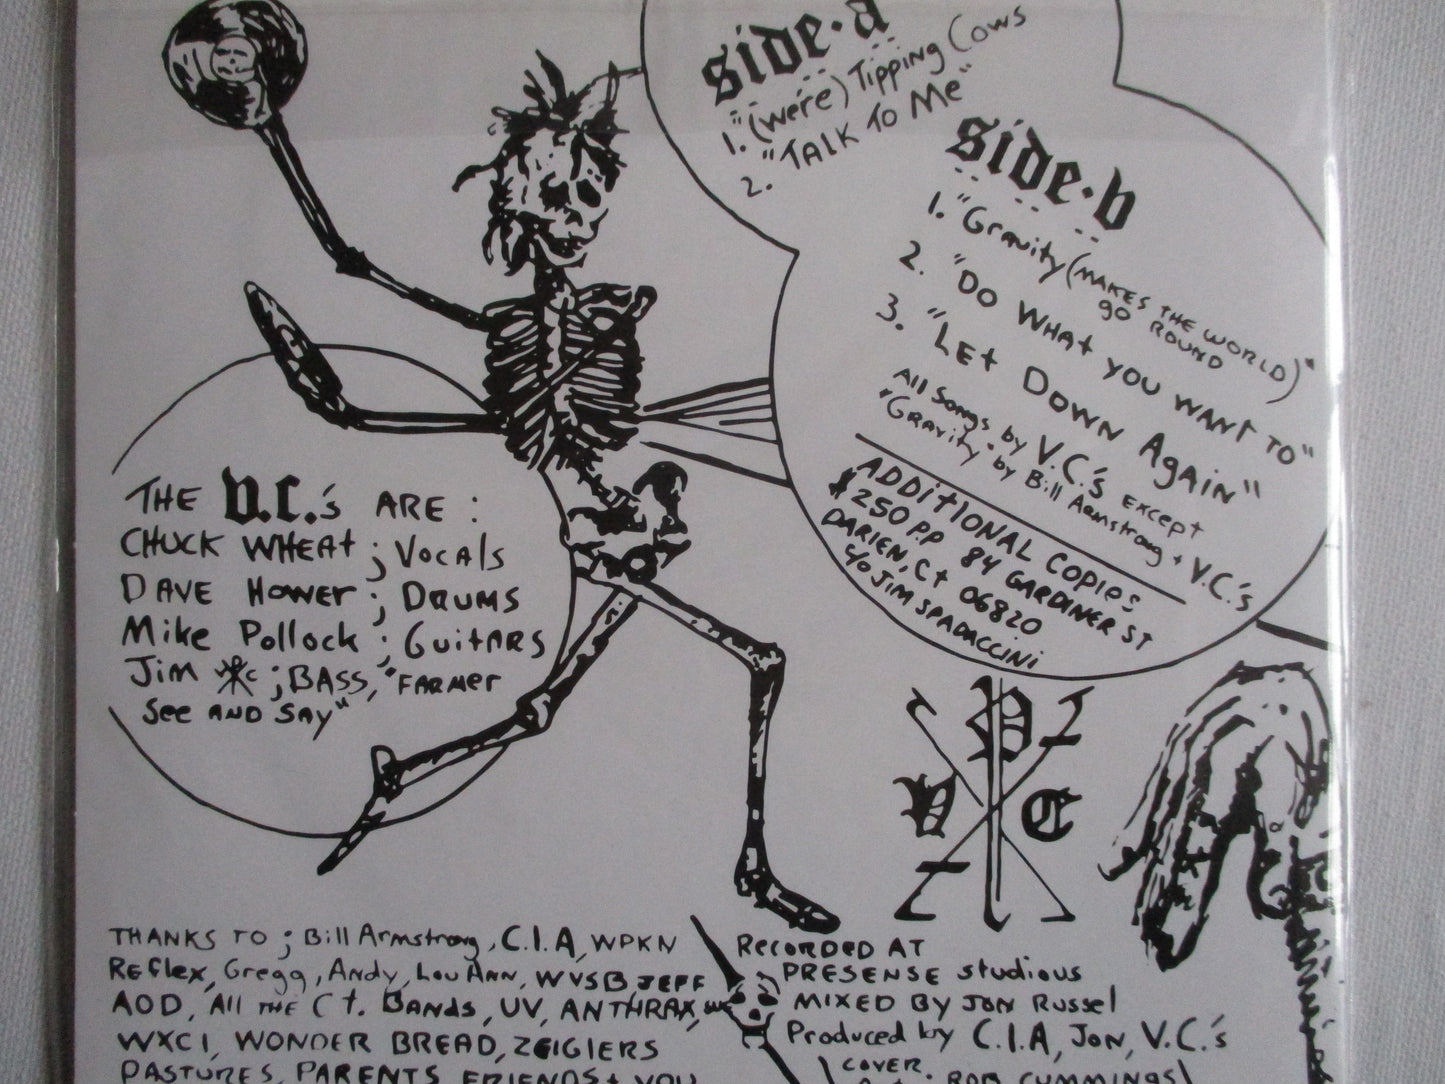 side·a
1. "(were) Tipping Cows
2. "TALK TO Me"
side·b
1. "Gravity (MAKES THE WORLD)"
go ROUND
2. "DO WHAT YOU WANT TO"
3. "LEt DOWN Again"
All Songs by V.C.'s EXCEPT
"Gravity" by Bill Armstrong + V.C.'s
ADDITIONAL COPIES
$250 P.P 84 GARDINER ST
DARIEN, Ct 06820
c/o JIM SPADACCINI
THE V.C.'s ARE :
CHUCK WHEAt ; Vocals
DAVE Hower ; DRUMS
Mike Pollock ; GuitARS
Jim ; BASS, "FARMer
See AND SAY"
V P C
THANKS TO ; Bill Armstrong, C.I.A, WPKN
REflex, Gregg, Andy, Lou Ann, WVSB JEFF
AOD, All THE Ct. Bands, UV, ANTHRAX,
WXCI, WONDER BREAD, ZEIGIERS
PASTURES, PARENTS FRIENDS + YOU
RecORDED AT
PRESENSE studious
MIXED BY JON Russel
Produced by C.I.A, JON, V.C.'s
COVER.
ROB CUMMINGS